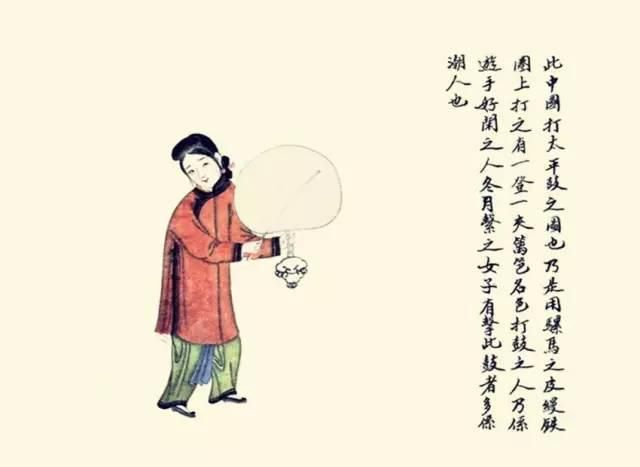 此中國打太平鼓之圖也乃是用騾馬之皮縵鉄
圈上打之有一登一夫萬笆名色打鼓之人乃係
遊手好閑之人冬月繫之女子有擊此鼓者多係
潮人也